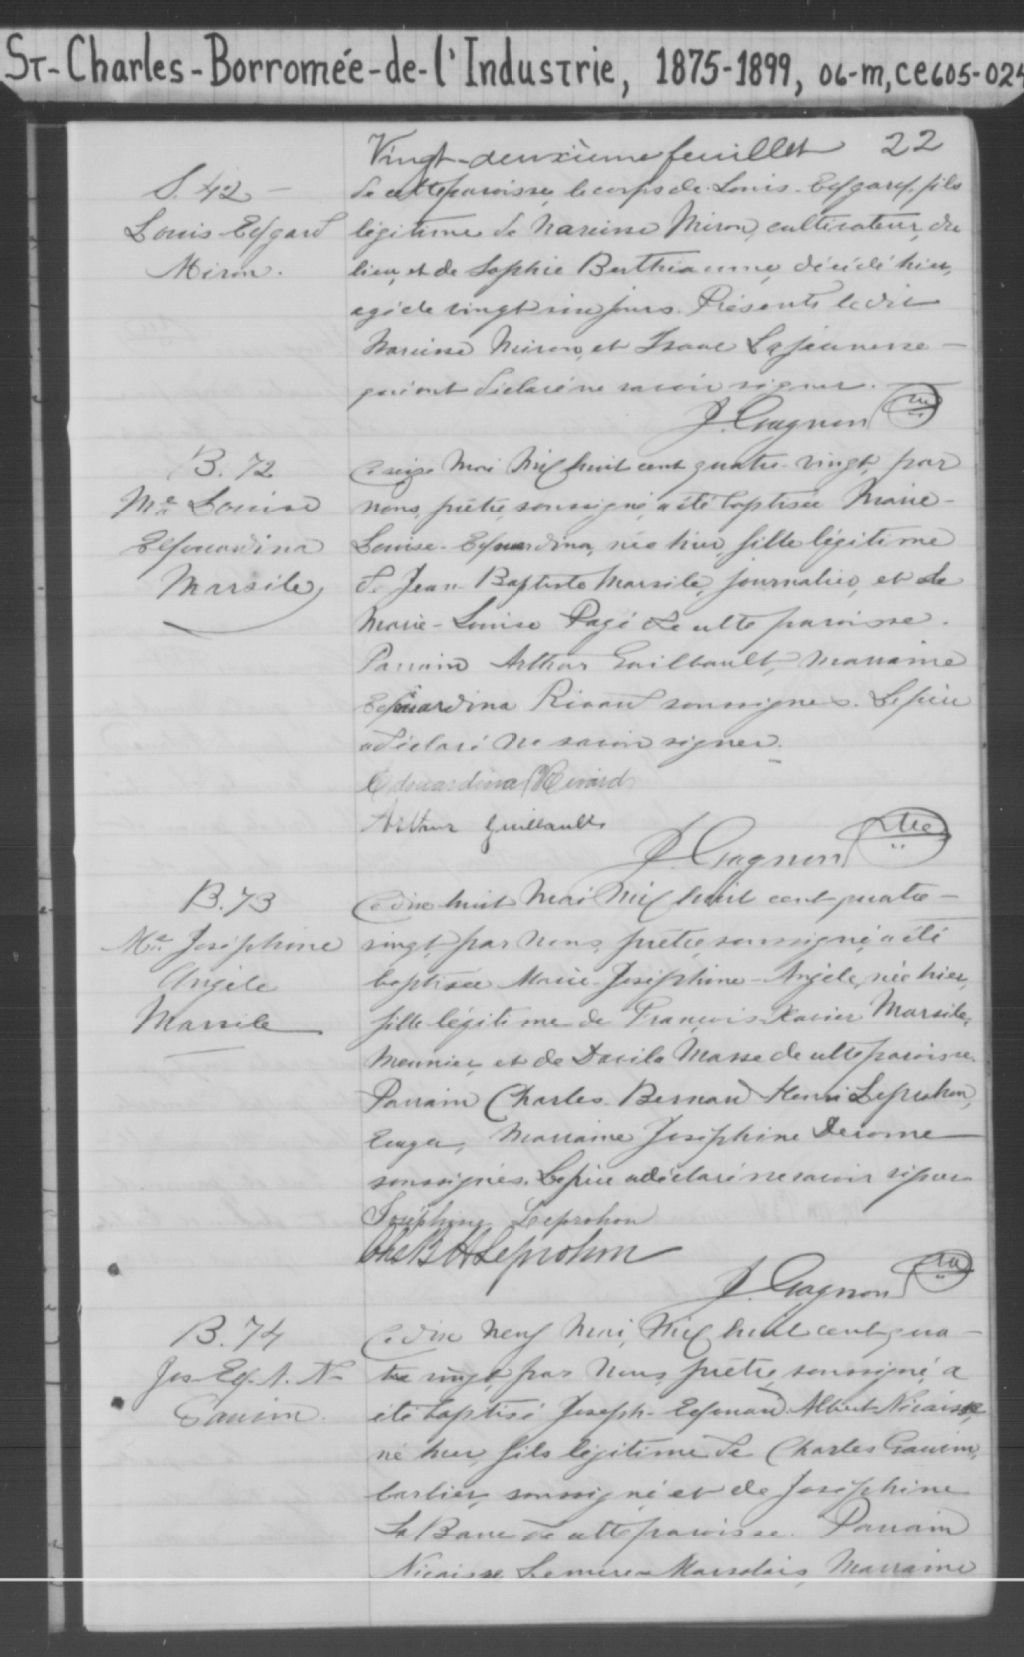 St-Charles-Borromée-de-l'Industrie, 1875-1899, 06-m, CE605-024
Vingt-deuxième feuillet 22
S. 42
Louis Edgard
Miron.
de cette paroisse, le corps de Louis-Edgard, fils
légitime de Narcisse Miron, cultivateur, du
lieu, et de Sophie Berthiaume, décédé hier,
agé de vingt jours. Présents le dit
Narcisse Miron, et Isaac Lajeunesse
qui ont déclaré ne savoir signer.
J. Gagnon Ptre
B. 72
Mie Louise
Edouardina
Marsile
Ce seize Mai Mil huit cent quatre-vingt, par
nous, prêtre, soussigné, a été baptisée Marie-
Louise-Edouardina, née hier, fille légitime
de Jean-Baptiste Marsile, journalier, et de
Marie-Louise Pagé de cette paroisse.
Parrain Arthur Guilbault, marraine
Edouardina Rivard soussignés. Le père
a déclaré ne savoir signer.
Edouardina Rivard
Arthur Guilbault
J. Gagnon Ptre
B. 73
Mie Joséphine
Angèle
Marsile
Ce dix huit Mai Mil huit cent quatre-
vingt, par nous, prêtre, soussigné, a été
baptisée Marie-Joséphine-Angèle, née hier,
fille légitime de François Xavier Marsile,
Meunier, et de Davila Masse de cette paroisse.
Parrain Charles Bernard Henri Leprohon,
Marraine Joséphine Derome
soussignés. Le père a déclaré ne savoir signer
Joséphine Leprohon
Chs B H Leprohon
J. Gagnon Ptre
B. 74
Jos Ed. A. N.
Gauvin.
Ce dix neuf Mai, Mil huit cent qua-
tre vingt, par Nous, prêtre, soussigné, a
été baptisé Joseph-Edouard Albert Nicaisse,
né hier, fils légitime de Charles Gauvin,
barbier, soussigné et de Joséphine
La Barre de cette paroisse. Parrain
Nicaisse Lemire-Marsolais, Marraine